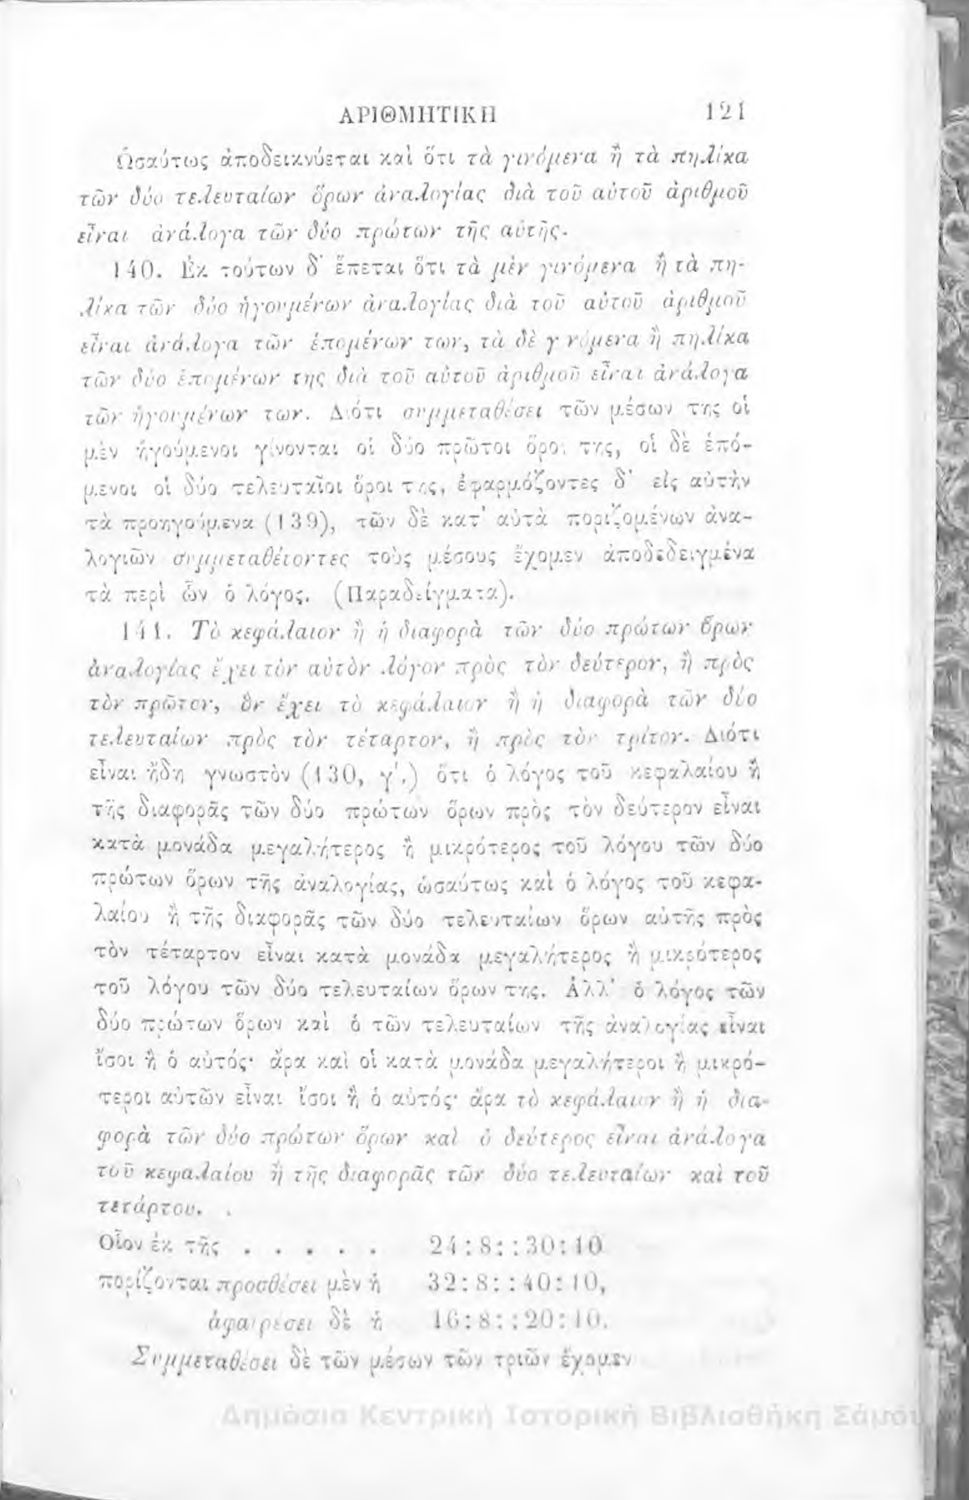 ΑΡΙΘΜΗΤΙΚΗ 121
Ὡσαύτως ἀποδεικνύεται καὶ ὅτι τὰ γινόμενα ἢ τὰ πηλίκα
τῶν δύο τελευταίων ὅρων ἀναλογίας διὰ τοῦ αὐτοῦ ἀριθμοῦ
εἶναι ἀνάλογα τῶν δύο πρώτων τῆς αὐτῆς.
140. Ἐκ τούτων δ' ἕπεται ὅτι τὰ μὲν γινόμενα ἢ τὰ πη-
λίκα τῶν δύο ἡγουμένων ἀναλογίας διὰ τοῦ αὐτοῦ ἀριθμοῦ
εἶναι ἀνάλογα τῶν ἑπομένων των, τὰ δὲ γινόμενα ἢ πηλίκα
τῶν δύο ἑπομένων της διὰ τοῦ αὐτοῦ ἀριθμοῦ εἶναι ἀνάλογα
τῶν ἡγουμένων των. Διότι συμμεταθέσει τῶν μέσων της οἱ
μὲν ἡγούμενοι γίνονται οἱ δύο πρῶτοι ὅροι της, οἱ δὲ ἑπό-
μενοι οἱ δύο τελευταῖοι ὅροι της, ἐφαρμόζοντες δ' εἰς αὐτὴν
τὰ προηγούμενα (139), τῶν δὲ κατ' αὐτὰ ποριζομένων ἀνα-
λογιῶν συμμεταθέτοντες τοὺς μέσους ἔχομεν ἀποδεδειγμένα
τὰ περὶ ὧν ὁ λόγος. (Παραδείγματα).
141. Τὸ κεφάλαιον ἢ ἡ διαφορὰ τῶν δύο πρώτων ὅρων
ἀναλογίας ἔχει τὸν αὐτὸν λόγον πρὸς τὸν δεύτερον, ἢ πρὸς
τὸν πρῶτον, ὃν ἔχει τὸ κεφάλαιον ἢ ἡ διαφορὰ τῶν δύο
τελευταίων πρὸς τὸν τέταρτον, ἢ πρὸς τὸν τρίτον. Διότι
εἶναι ἤδη γνωστὸν (130, γ'.) ὅτι ὁ λόγος τοῦ κεφαλαίου ἢ
τῆς διαφορᾶς τῶν δύο πρώτων ὅρων πρὸς τὸν δεύτερον εἶναι
κατὰ μονάδα μεγαλήτερος ἢ μικρότερος τοῦ λόγου τῶν δύο
πρώτων ὅρων τῆς ἀναλογίας, ὡσαύτως καὶ ὁ λόγος τοῦ κεφα-
λαίου ἢ τῆς διαφορᾶς τῶν δύο τελευταίων ὅρων αὐτῆς πρὸς
τὸν τέταρτον εἶναι κατὰ μονάδα μεγαλήτερος ἢ μικρότερος
τοῦ λόγου τῶν δύο τελευταίων ὅρων της. Ἀλλ' ὁ λόγος τῶν
δύο πρώτων ὅρων καὶ ὁ τῶν τελευταίων τῆς ἀναλογίας εἶναι
ἴσοι ἢ ὁ αὐτός· ἄρα καὶ οἱ κατὰ μονάδα μεγαλήτεροι ἢ μικρό-
τεροι αὐτῶν εἶναι ἴσοι ἢ ὁ αὐτός· ἄρα τὸ κεφάλαιον ἢ ἡ δια-
φορὰ τῶν δύο πρώτων ὅρων καὶ ὁ δεύτερος εἶναι ἀνάλογα
τοῦ κεφαλαίου ἢ τῆς διαφορᾶς τῶν δύο τελευταίων καὶ τοῦ
τετάρτου.
Οἷον ἐκ τῆς . . . . . 24:8::30:10
πορίζονται προσθέσει μὲν ἡ 32:8::40:10,
ἀφαιρέσει δὲ ἡ 16:8::20:10.
Συμμεταθέσει δὲ τῶν μέσων τῶν τριῶν ἔχομεν
Δημόσια Κεντρική Ιστορική Βιβλιοθήκη Σάμου